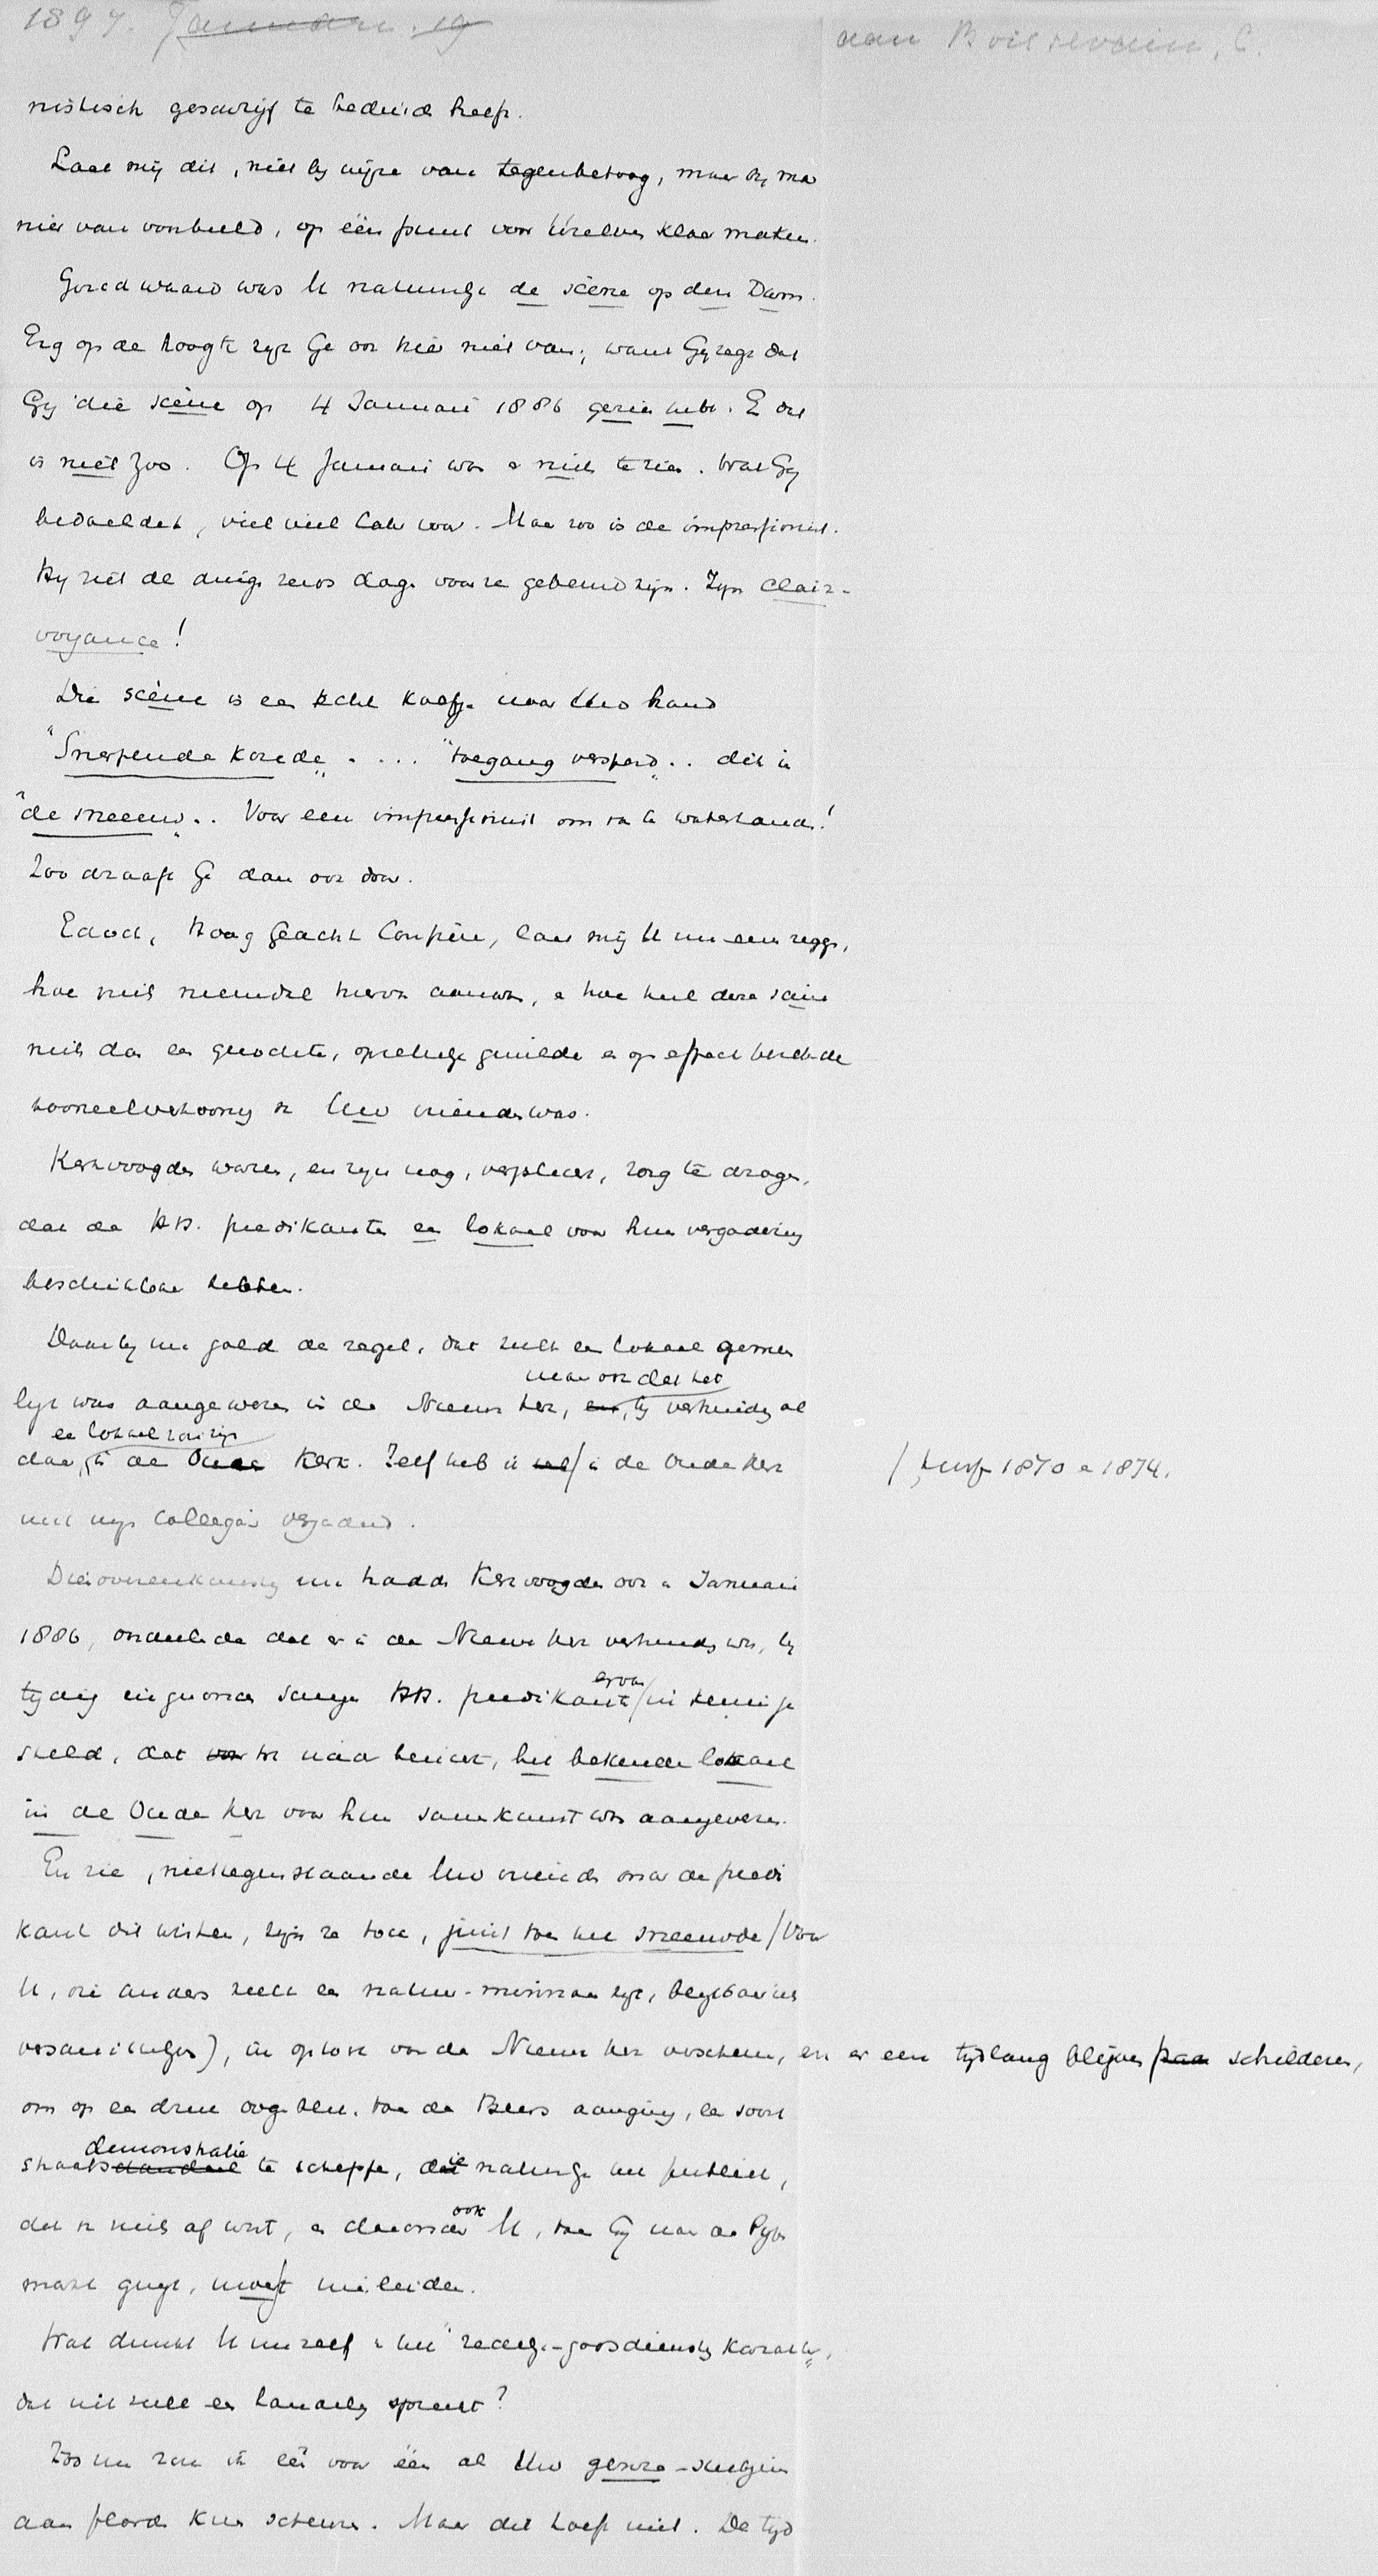 1897. Januari. 19
aan Boissevain, C.
nistisch geschrijf te beduiden heeft.
Laat mij dit, niet bij wijze van tegenbetoog, maar bij ma
nier van voorbeeld, op één punt voor Uzelven klaar maken.
Goud waard was U natuurlijk de scène op den Dam.
Erg op de hoogte zijt Ge ook hier niet van; want Gij zegt dat
Gij die scène op 4 Januari 1886 gezien hebt. En dat
is niet zoo. Op 4 Januari was er niets te zien. Wat Gij
bedoeldet, viel veel later voor. Maar zoo is de impressionist.
Hij ziet de dingen zelfs dagen voor ze gebeurd zijn. Zijn clair-
voyance!
Die scène is een echt kolfje naar Uwe hand
"Snerpende koude" .... "toegang versperd".. dit in
"de sneeuw".. Voor een impressionist om van te watertanden!
Zoo draaft Ge dan ook door.
Edoch, Hoog Geachte Confrère, laat mij U nu eens zeggen,
hoe niets hiervan aan was, en hoe heel deze scène
niets dan een gezochte, opzettelijk gewilde en op effect berekende
tooneelvertooning van Uw vrienden was.
Kerkvoogden waren, en zijn nog, verplicht, zorg te dragen,
dat de HH. predikanten een lokaal voor hun vergadering
beschikbaar hebben.
Daarbij nu gold de regel, dat zulk een lokaal gemeen
maar ook dat het
lijk was aangewezen in de Nieuwe kerk, en, bij verhindering al
een lokaal zou zijn
daar, in de Oude Kerk. Zelf heb ik wel / in de Oude kerk
/ tusschen 1870 en 1874.
met mijn collega's vergaderd.
Dienovereenkomstig nu hadden Kerkvoogden ook in Januari
1886, onderstellende dat er in de Nieuwe kerk verhindering was, bij
ervan
tijdig ingezonden schrijven HH. predikanten / in kennis ge
steld, dat hun naar bericht, het bekende lokaal
in de Oude kerk voor hun samenkomst was aangewezen.
En zie, niettegenstaande Uw vrienden onder de predi
kanten dit wisten, zijn ze toch, juist toen het sneeuwde / (voor
U, die anders zelf een natuur-minnaar zijt, blijkbaar iets
verschrikkelijks), in optocht voor de Nieuwe kerk verschenen, en er een tijdlang blijven staan schilderen,
om op een druk oogenblik, toen de Beurs aanging, een soort
demonstratie
straatschandaal te scheppen, die natuurlijk het publiek,
ook
dat van niets af wist, en daaronder U, toen Gij naar de Pijpen
markt gingt, moest misleiden.
Wat dunkt U nu zelf van het "zedelijk-godsdienstig karakter",
dat uit zulk een handeling spreekt?
Zoo nu zou ik één voor één al Uw genre-stukjes
aan flarden kunnen scheuren. Maar dit hoeft niet. De tijd